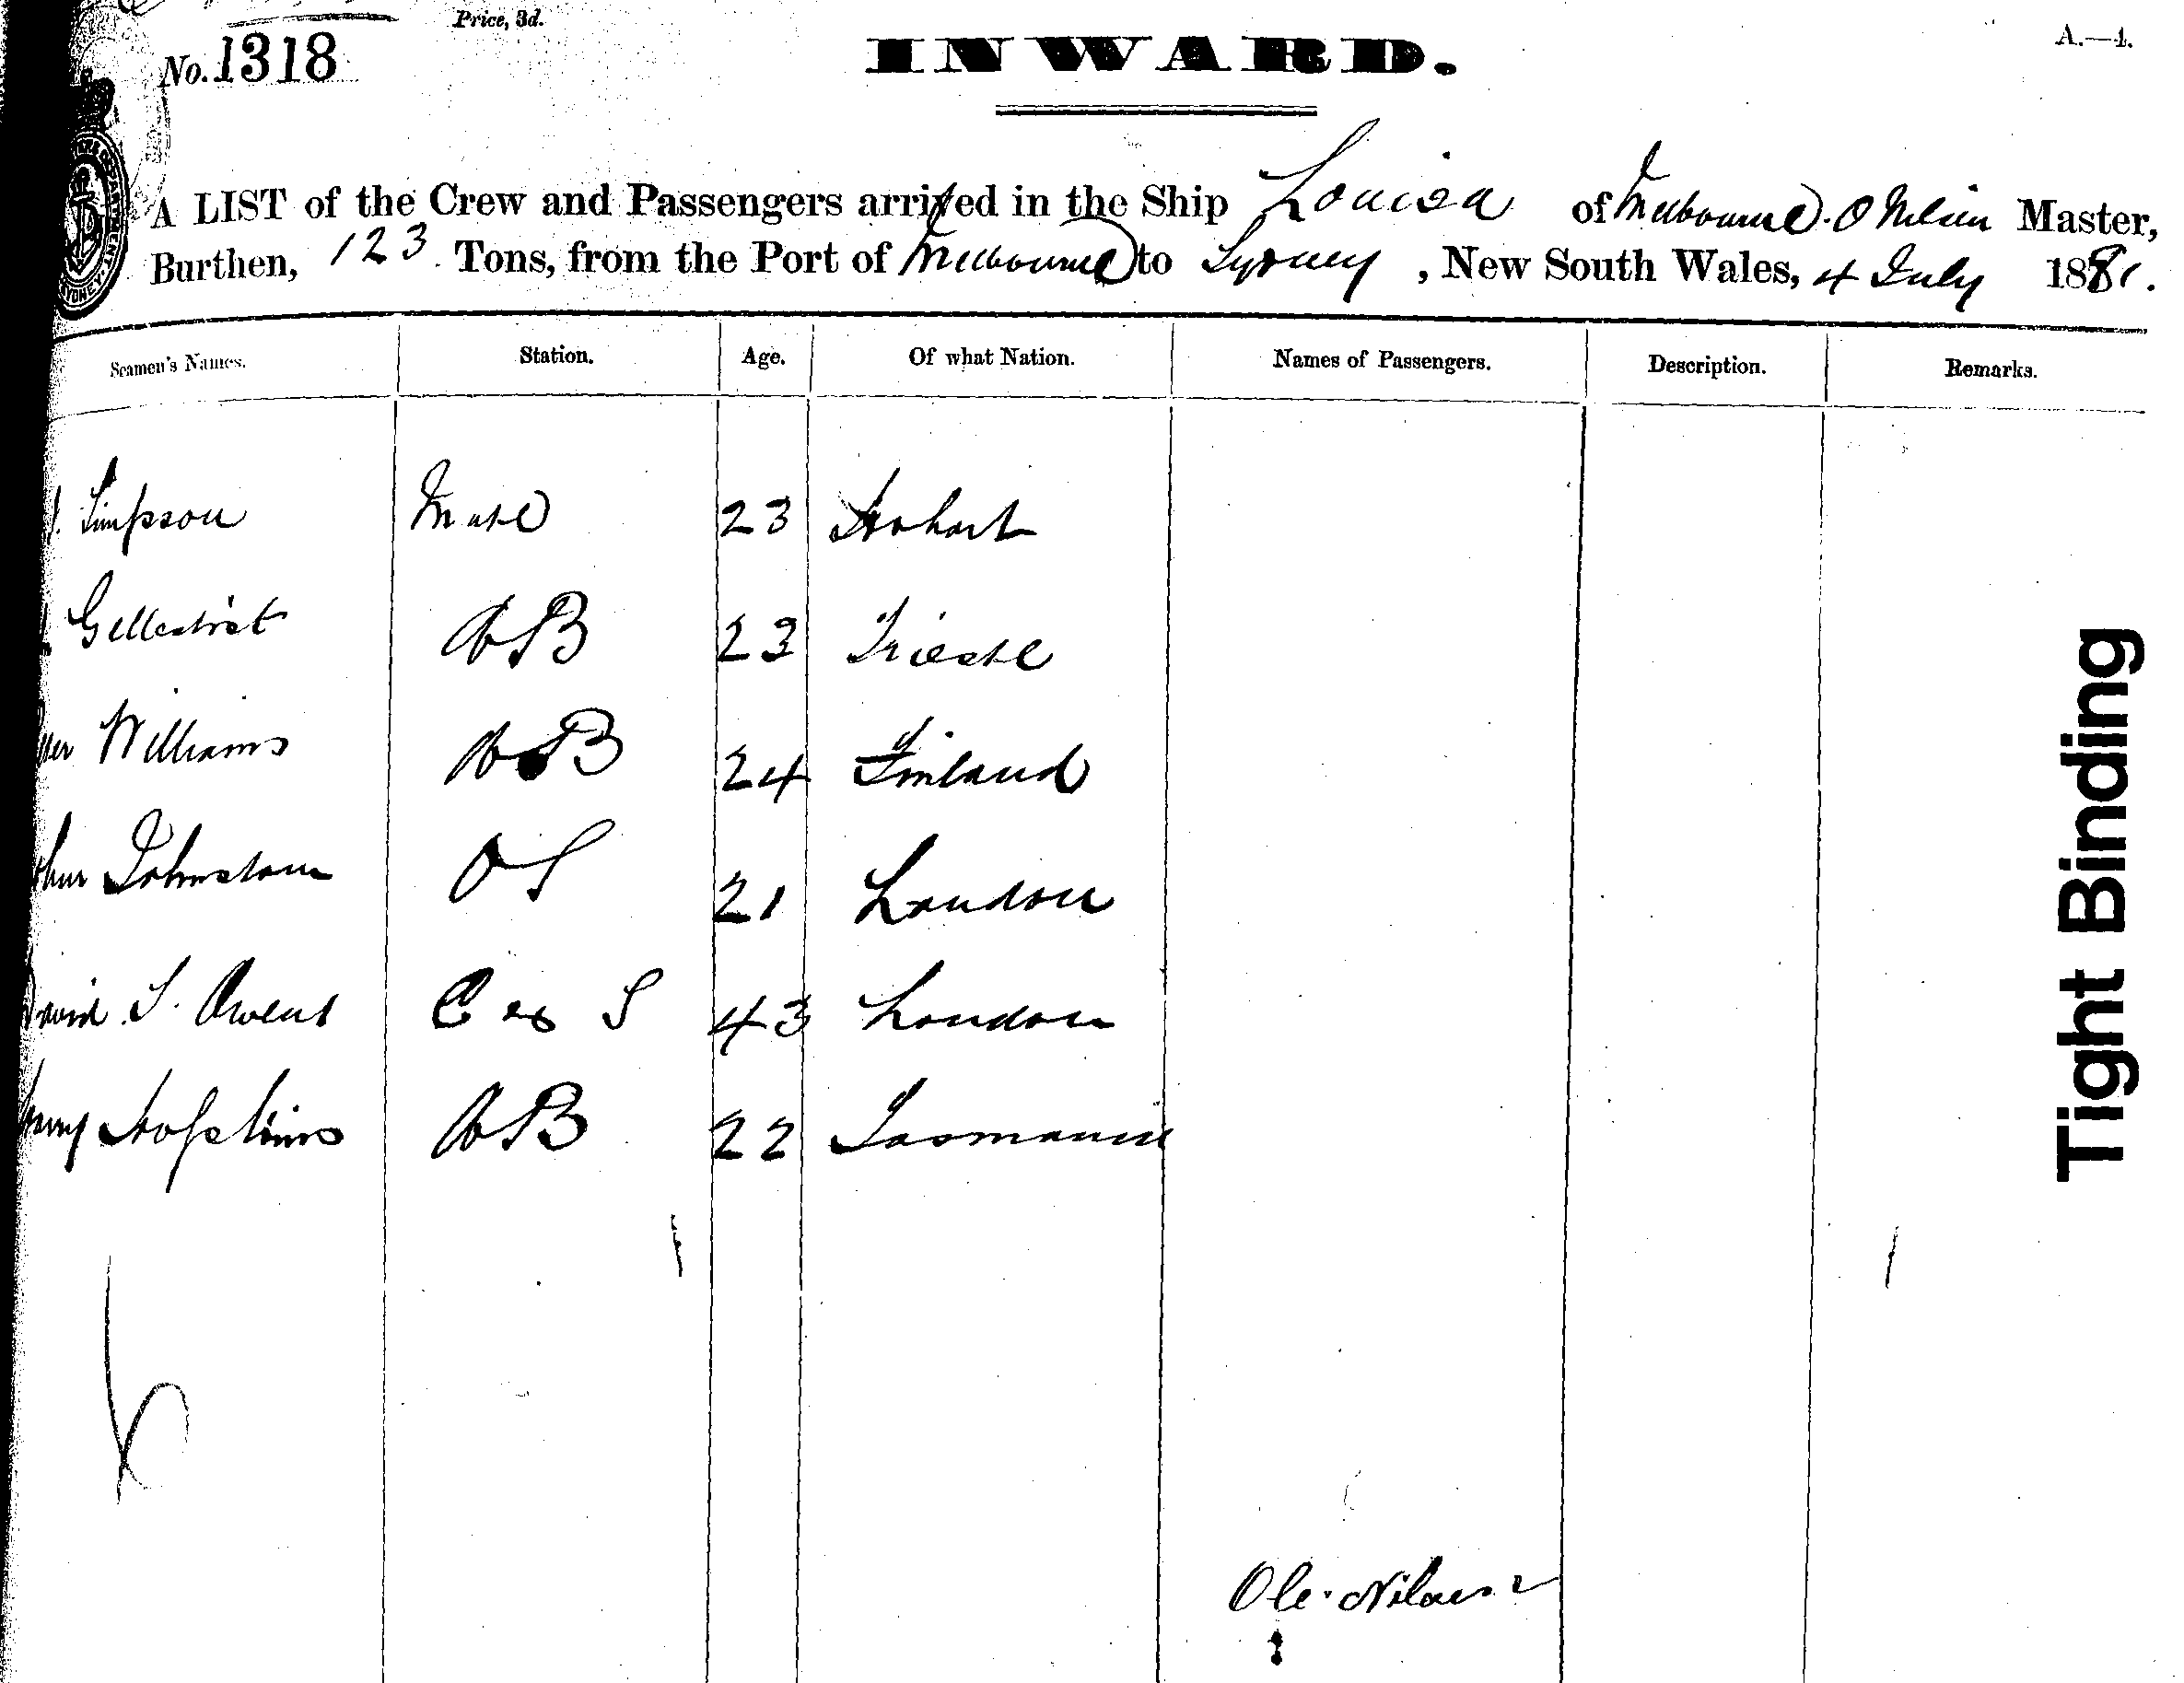 Price, 3d.
No. 1318
INWARD.
A.—4.
A LIST of the Crew and Passengers arrived in the Ship Louisa of Melbourne. O Nelson Master,
Burthen, 123 Tons, from the Port of Melbourne to Sydney, New South Wales, 4 July 1881.
Seamen's Names. Station. Age. Of what Nation. Names of Passengers. Description. Remarks.
Simpson Mate 23 Hobart
AB 23 Trieste
Williams AB 24 Finland
Johnstone OS 21 London
David S. Owens C & S 43 London
Hopkins AB 22 Tasmania
6
Ole Nilsen
Tight Binding